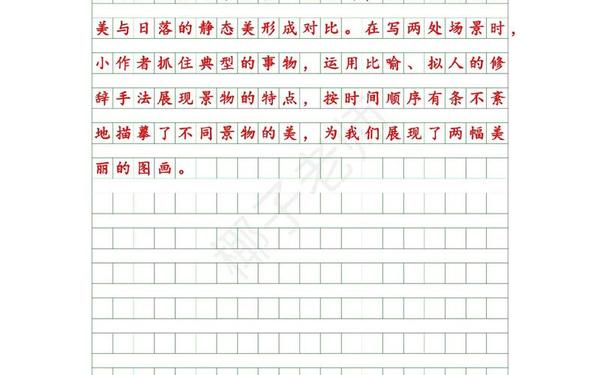 美与日落的静态美形成对比。在写两处场景时，
小作者抓住典型的事物，运用比喻、拟人的修
辞手法展现景物的特点，按时间顺序有条不紊
地描摹了不同景物的美，为我们展现了两幅美
丽的图画。
椰子老师